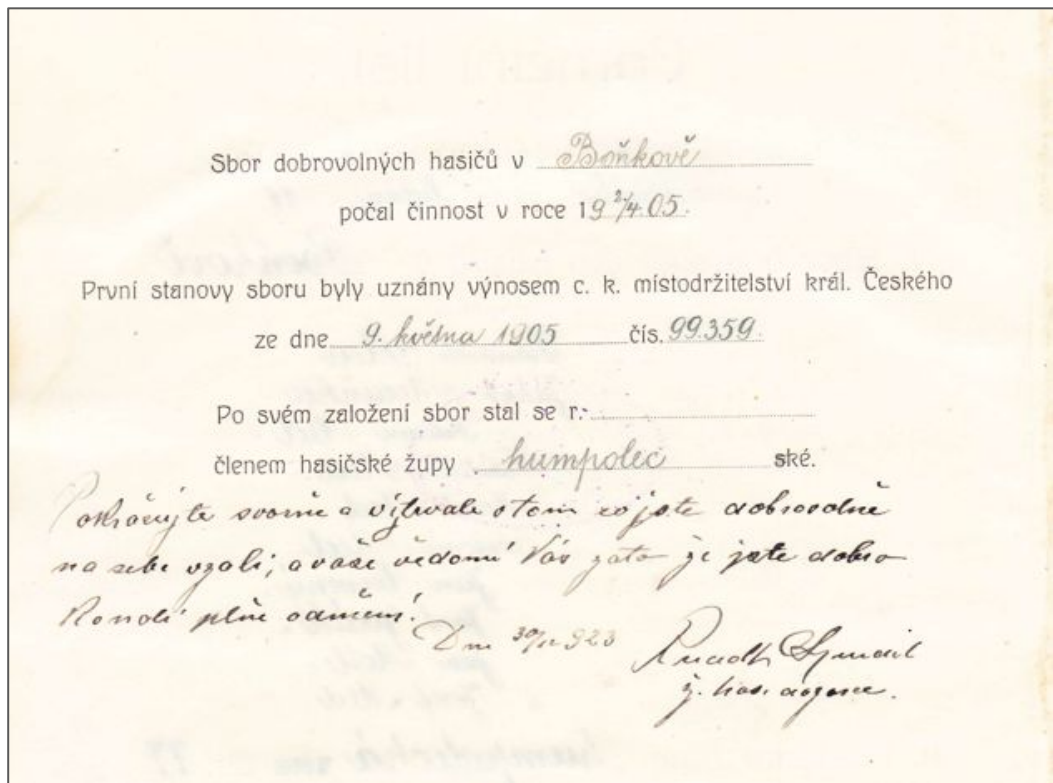 Sbor dobrovolných hasičů v Boňkově
počal činnost v roce 19 2/4 05.
První stanovy sboru byly uznány výnosem c. k. místodržitelství král. Českého
ze dne 9. května 1905 čís. 99.359.
Po svém založení sbor stal se r.
členem hasičské župy humpolec ské.
Pokračujte svorně a vytrvale v tom co jste dobrovolně
na sebe vzali, a vaše vědomí Vás zato že jste dobro
konali plně odmění!
Dne 923
ž. has.